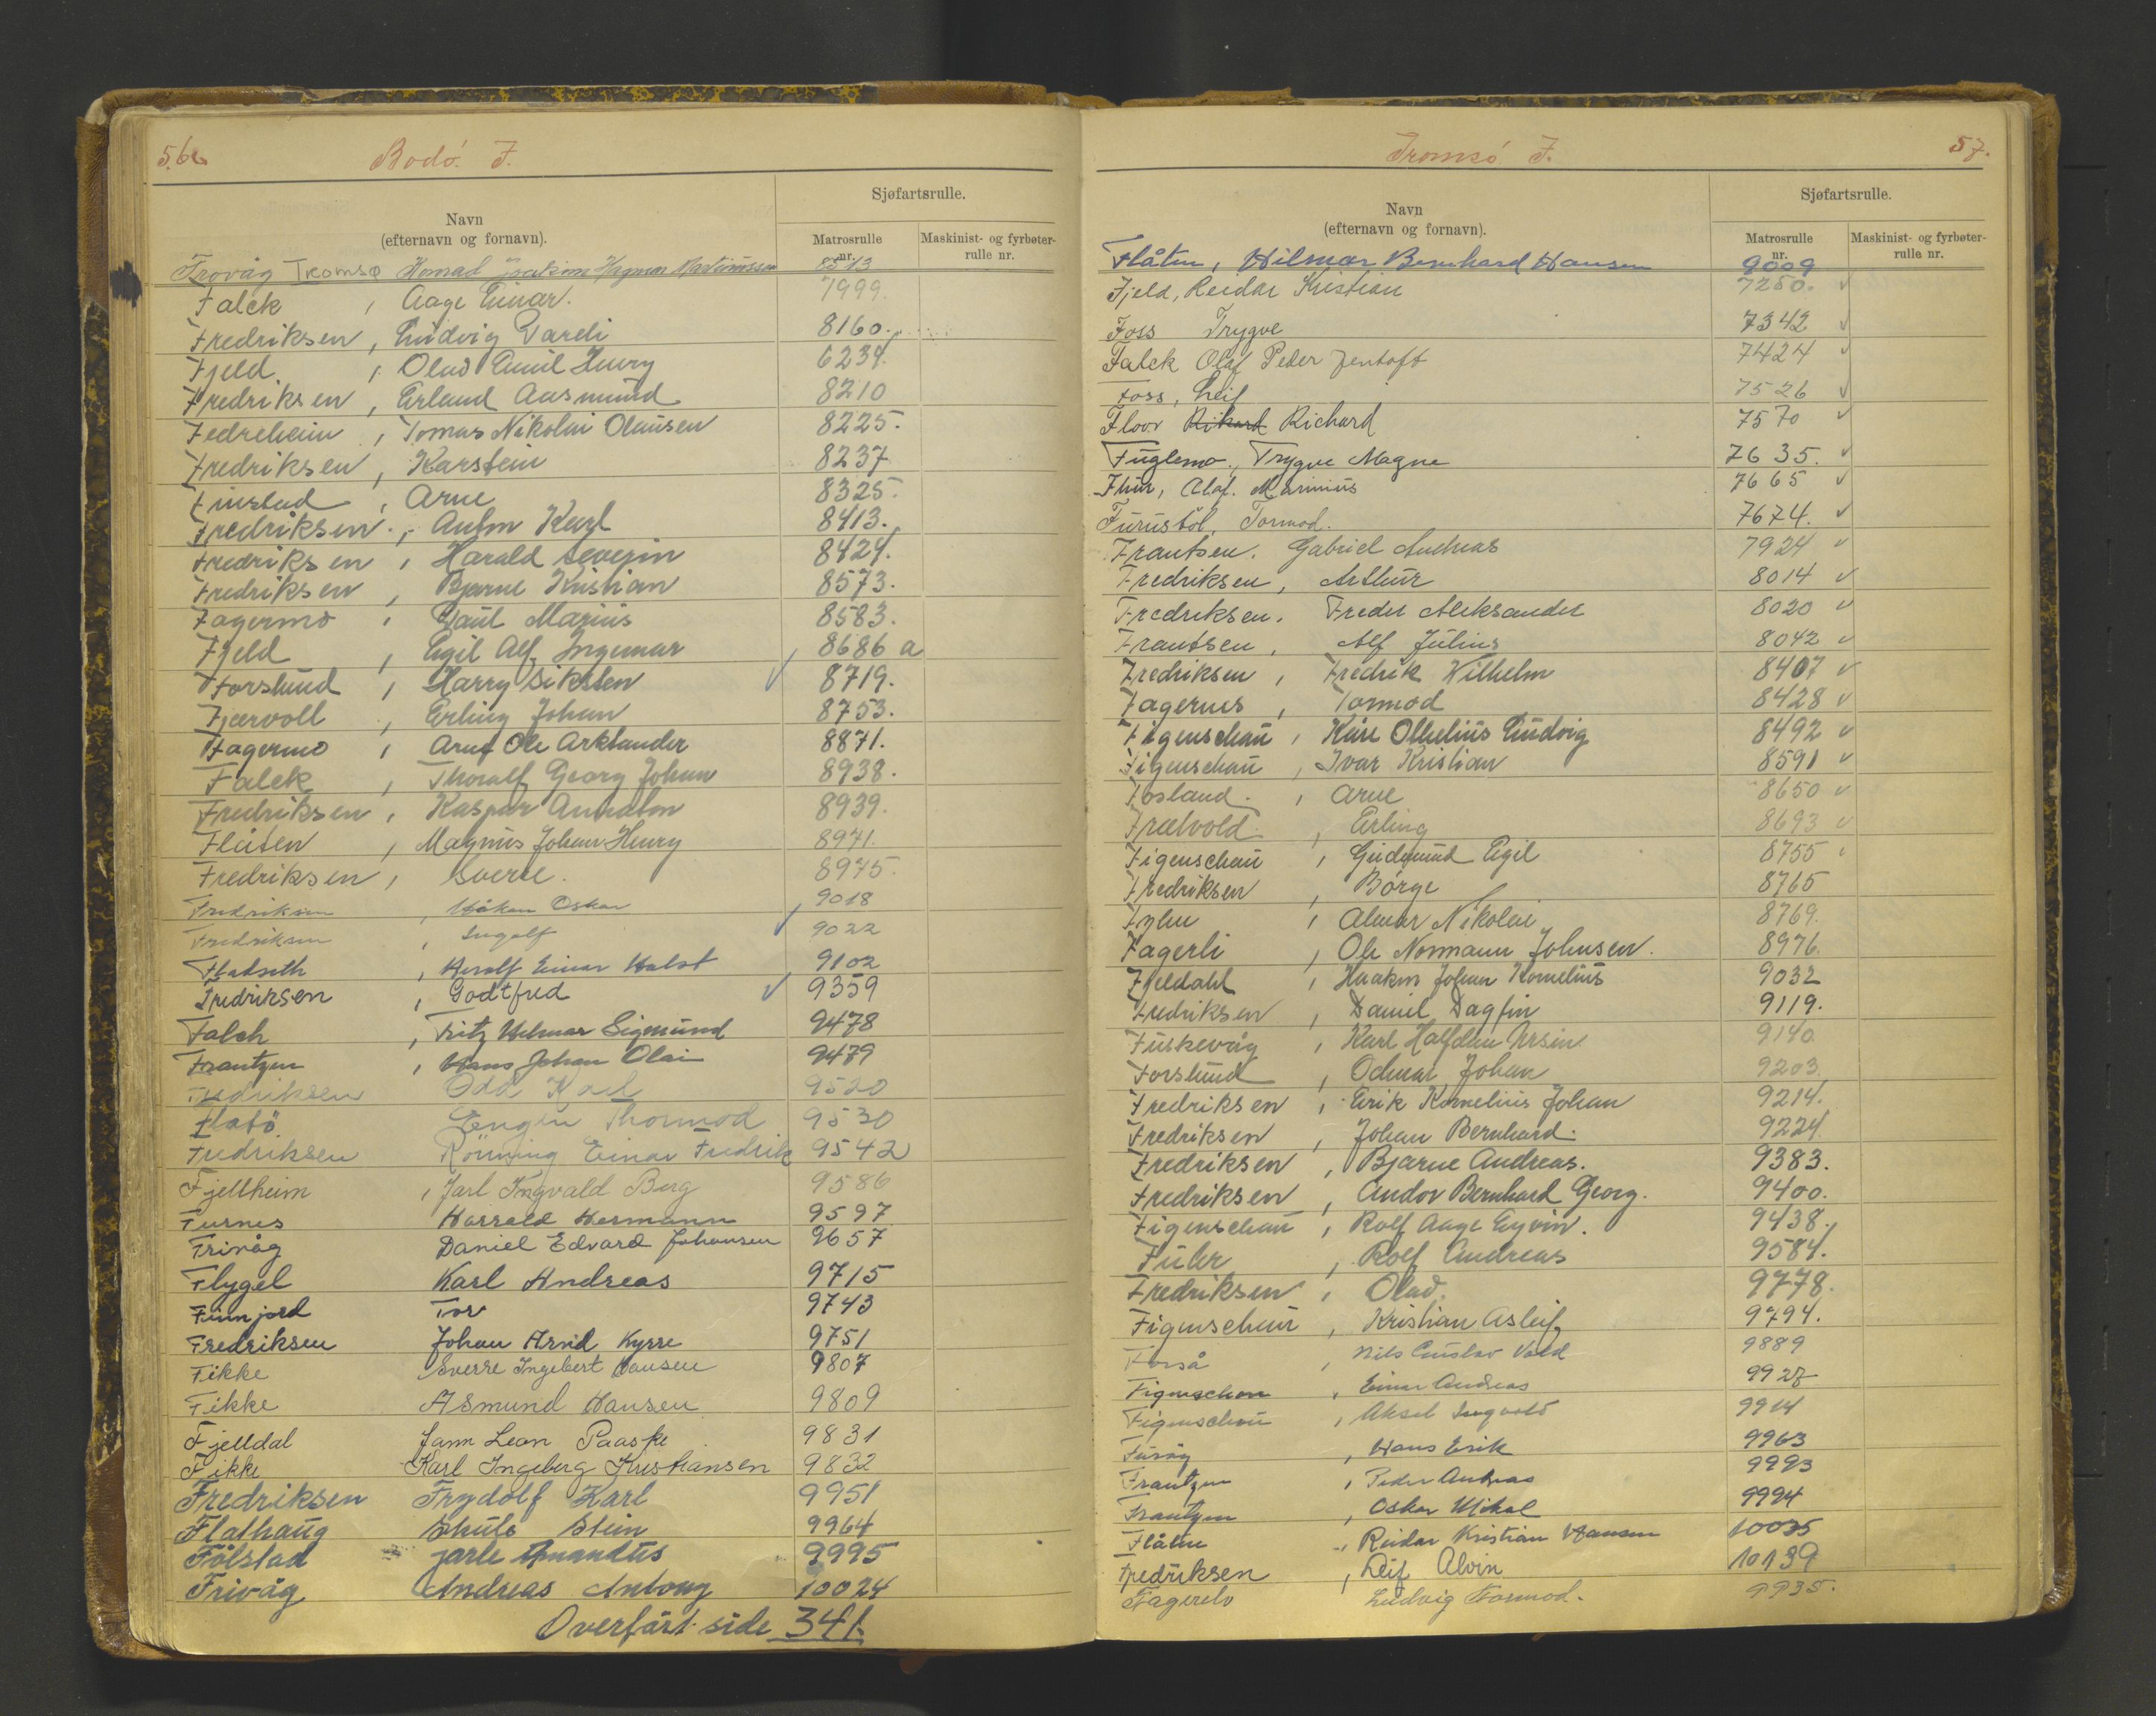 56 Bodø. F.
Sjøfartsrulle.
Navn
(efternavn og fornavn).
Matrosrulle nr.
Maskinist- og fyrbøter-
rulle nr.
Frovåg Tromsø Konrad Joakim Hagmar Martinussen 8513
Falck, Aage Einar. 7999.
Fredriksen, Ludvig Vardi 8160.
Fjeld, Olav Emil Henry 6234.
Fredriksen, Erland Aasmund 8210
Fedreheim, Tomas Nikolai Olausen 8225.
Fredriksen, Karstein 8237
Finstad, Arne 8325.
Fredriksen, Anton Karl 8413.
Fredriksen, Harald Severin 8424.
Fredriksen, Bjarne Kristian 8573.
Fagermo, Paul Marius 8583.
Fjeld, Egil Alf Ingemar 8686 a
Forslund, Harry Siksten 8719.
Fjærvoll, Erling Johan 8753.
Fagermo, Arne Ole Arklander 8871.
Falck, Thoralf Georg Johan 8938.
Fredriksen, Kaspar Annaton 8939.
Flåten, Magnus Johan Henry 8971.
Fredriksen, Sverre. 8975.
Fredriksen, Håkon Oskar 9018
Fredriksen, Ingolf 9022
Flatseth, Herolf Einar Holst 9102
Fredriksen, Godtfred 9359
Falch, Fritz Helmar Sigmund 9478
Frantzen, Hans Johan Olai 9479
Fredriksen Odd Karl 9520
Flatø Engen Thormod 9530
Fredriksen Rönning Einar Fredrik 9542
Fjellheim, Jarl Ingvald Berg 9586
Furnes Harrald Hermann 9597
Frivåg Daniel Edvard Johansen 9657
Flygel Karl Andreas 9715
Finnjord Tor 9743
Fredriksen Johan Arvid Kyrre 9751
Fikke Sverre Ingebert Hansen 9807
Fikke Asmund Hansen 9809
Fjelldal Jann Leon Paaske 9831
Fikke Karl Ingeberg Kristiansen 9832
Fredriksen Frydolf Karl 9951
Flathaug Skule Stein 9964
Følstad Jarle Amandus 9995
Frivåg Andreas Antony 10024
Overført side 341.
Tromsø F. 57.
Sjøfartsrulle.
Navn
(efternavn og fornavn).
Matrosrulle nr.
Maskinist- og fyrbøter-
rulle nr.
Flåten, Hilmar Bernhard Hansen 9009
Fjeld, Reidar Kristian 7250.
Foss Trygve 7342
Falck Olaf Peder Zentoft 7424
Foss, Leif 7526
Floor Rikard Richard 7570
Fuglemo, Trygve Magne 7635.
Fhur, Olaf. Marinius 7665
Furustøl, Tormod. 7674.
Frantsen. Gabriel Andreas 7924
Fredriksen, Arthur 8014
Fredriksen. Freder Aleksander 8020
Frantsen, Alf Julius 8042
Fredriksen, Fredrik Wilhelm 8407
Fagernes, Tormod 8428
Figenschau, Kåre Othelius Ludvig 8492
Figenschau, Ivar Kristian 8591
Fosland, Arne 8650
Frætvold, Erling 8693
Figenschau, Gudmund Egil 8755
Fredriksen, Börge 8765
Fyhn, Almar Nikolai 8769.
Fagerli, Ole Normann Johnsen. 8976.
Fjeldahl, Haakon Johan Kornelius 9032
Fredriksen, Daniel Dagfin 9119.
Fuskevåg, Karl Halfdan Ursin 9140.
Forslund, Odmar Johan 9203.
Fredriksen, Erik Kornelius Johan 9214.
Fredriksen, Johan Bernhard. 9224
Fredriksen, Bjarne Andreas. 9383.
Fredriksen, Andor Bernhard Georg. 9400.
Figenschau, Rolf Aage Eyvin. 9438.
Fuhr, Rolf Andreas 9584.
Fredriksen, Olav. 9778.
Figenschau, Kristian Asleif 9794.
Forså, Nils Gustav Vald 9889
Figenschou, Einar Andreas 9927
Figenschou, Aksel Ingvald 9914
Furøy, Hans Erik 9963
Frantzen, Peder Andreas 9993
Frantzen, Oskar Mikal 9994
Flåten, Reidar Kristian Hansen 10035
Fredriksen, Leif Alvin 10139
Fagerelv Ludvig Tormod. 9935.